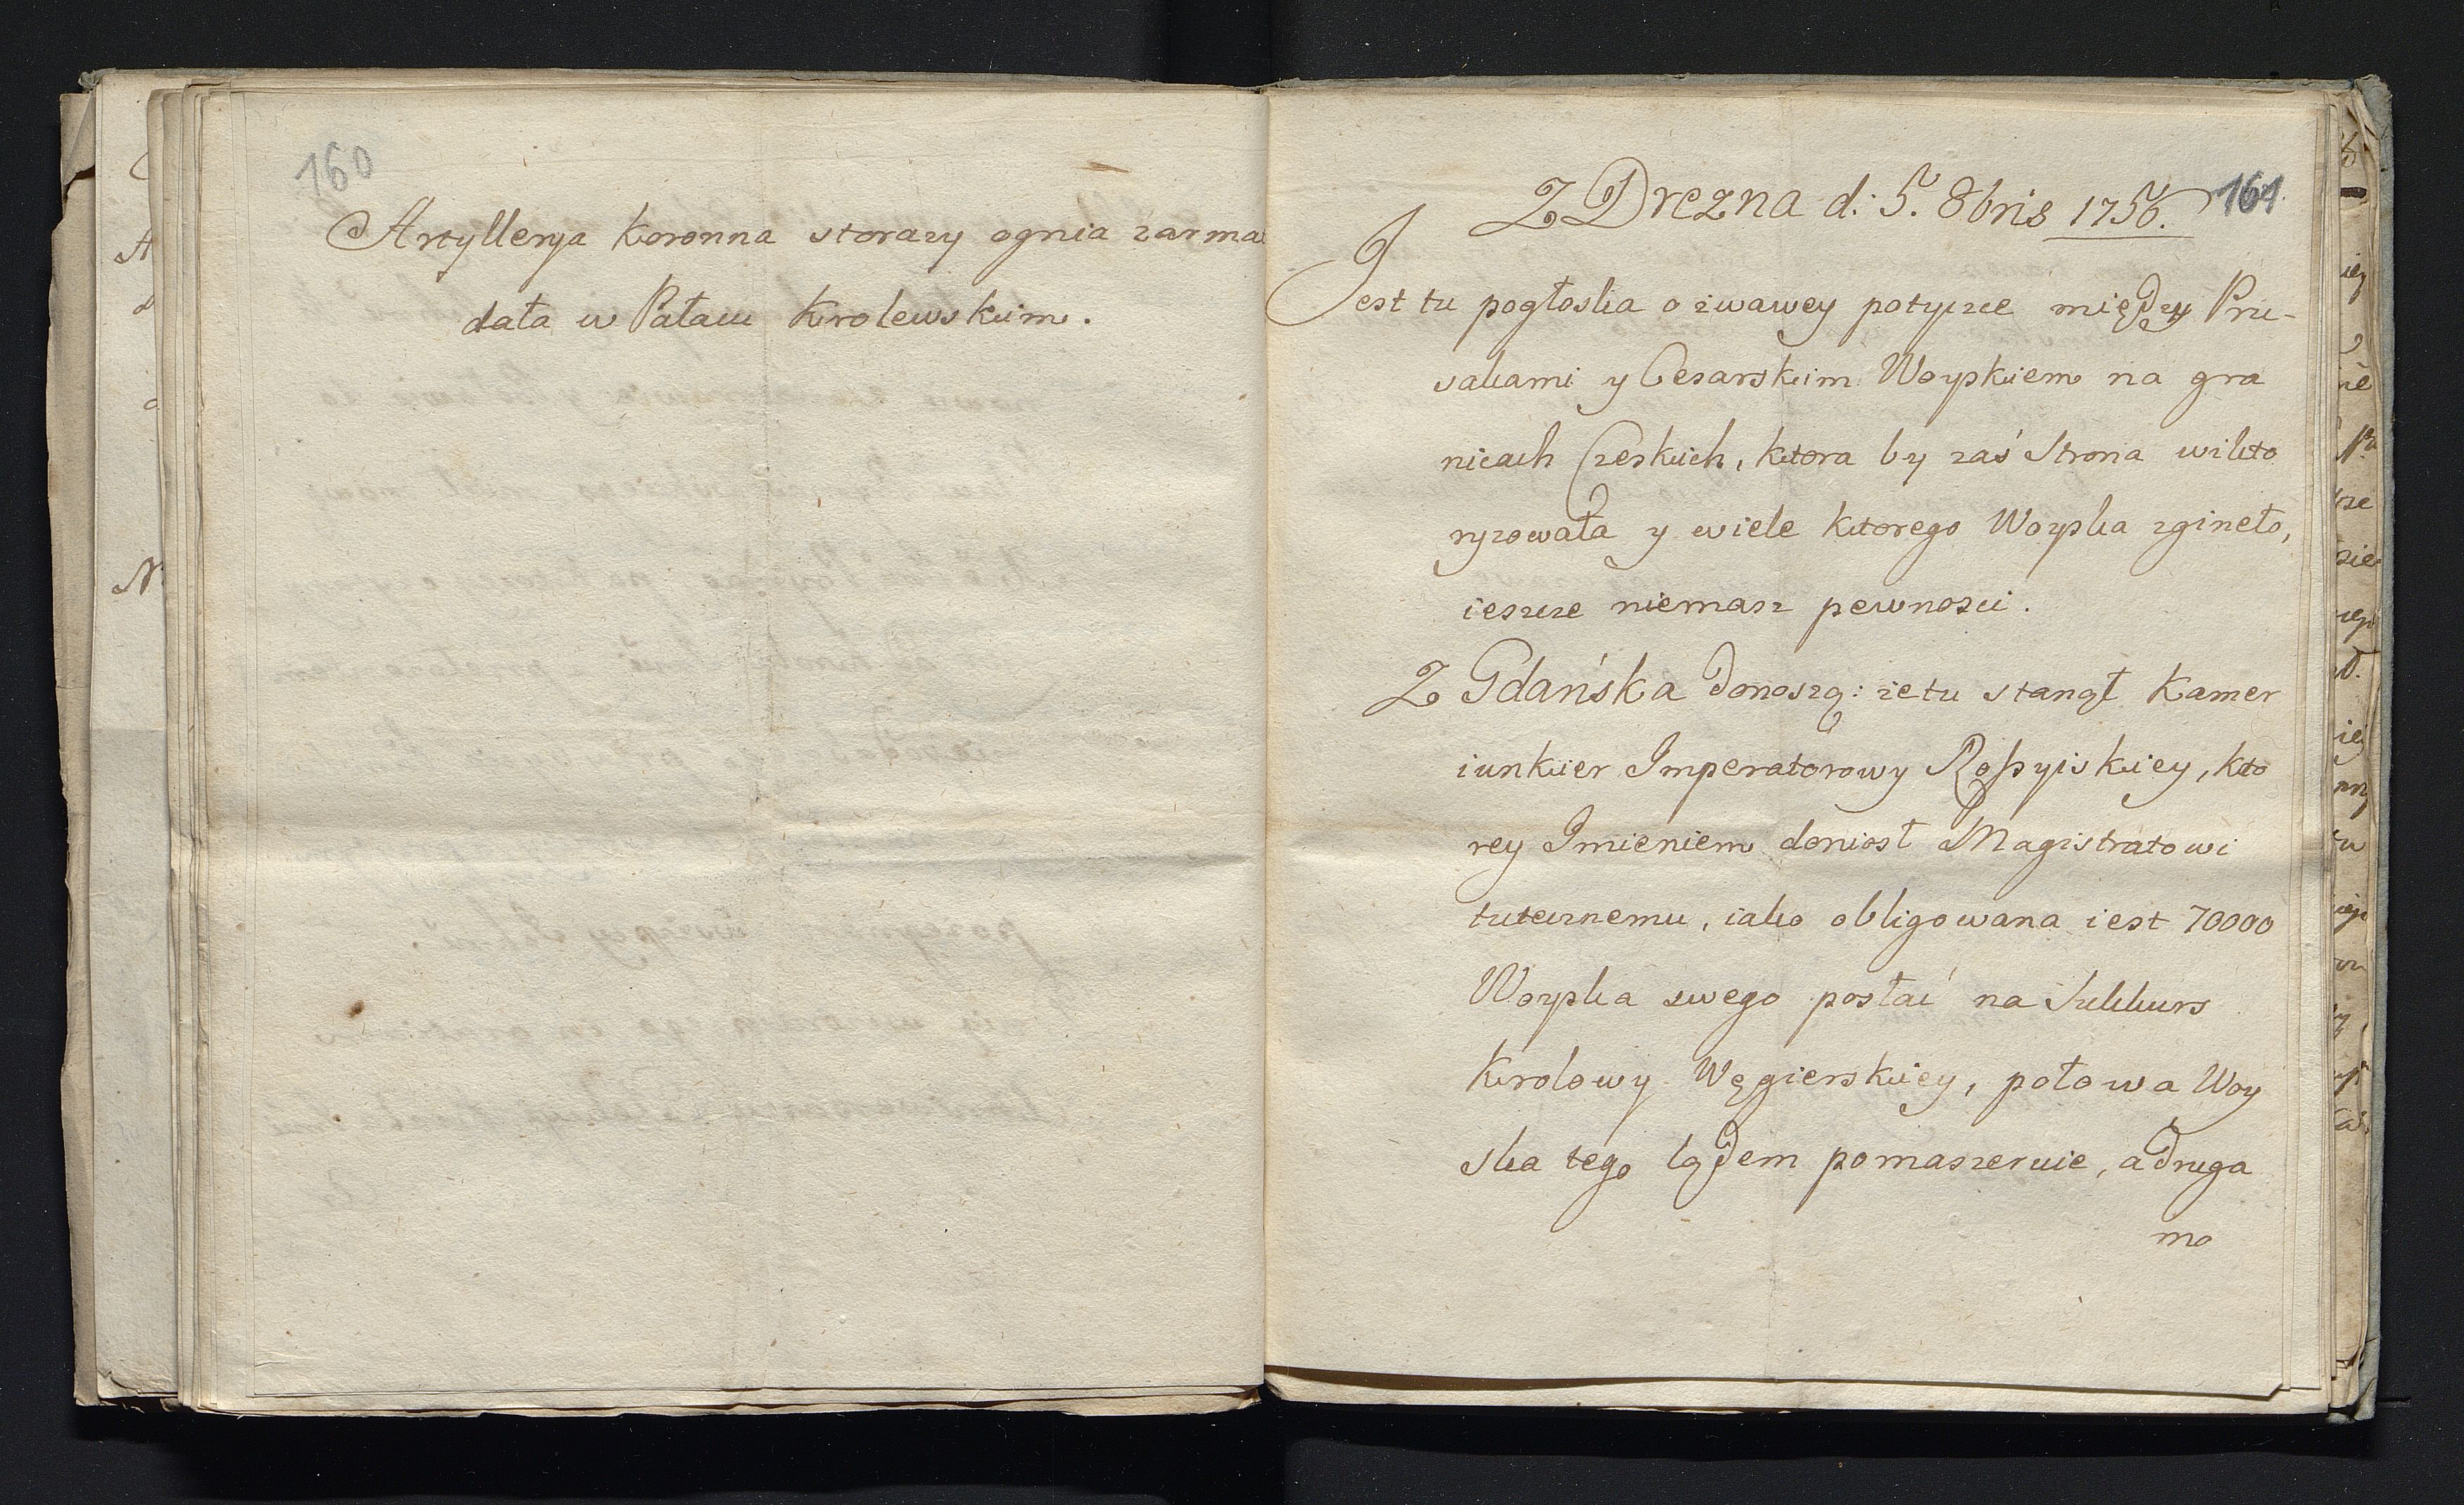 160
Artyllerya Koronna storazy ognia zarma
data w Pałacu Krolewskim.
161.
Z Drezna d: 5. 8bris 1756.
Jest tu pogłoska o zwawey potyczce między Pru-
sakami y Cesarskim Woyskiem na gra
nicach Czeskich, ktora by zaś Strona wikto
ryzowała y wiele ktorego Woyska zgineło,
ieszcze niemasz pewnosci.
Z Gdańska donoszą: ze tu stanął Kamer
iunkier Imperatorowy Rossyiskiey, kto
rey Imieniem doniosł Magistratowi
tutecznemu, iako obligowana iest 70000
Woyska swego posłać na Sukkurs
Krolowy Węgierskiey, połowa Woy
ska tego lądem pomaszeruie, a druga
mo